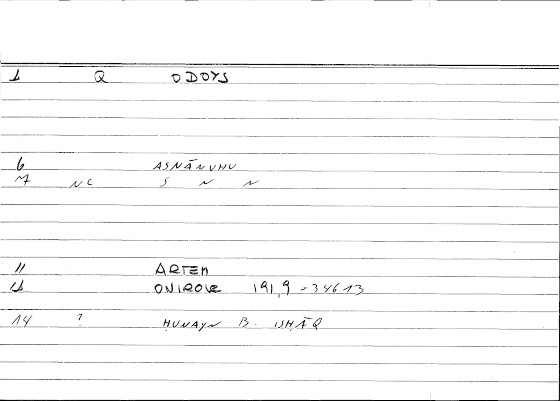 1 Q ODOYS
6 ASNĀNUHU
7 NC S N N
11 ARTEM
12 ONIROCR 191,9 - 346 13
14 ? ḤUNAYN B. ISḤĀQ